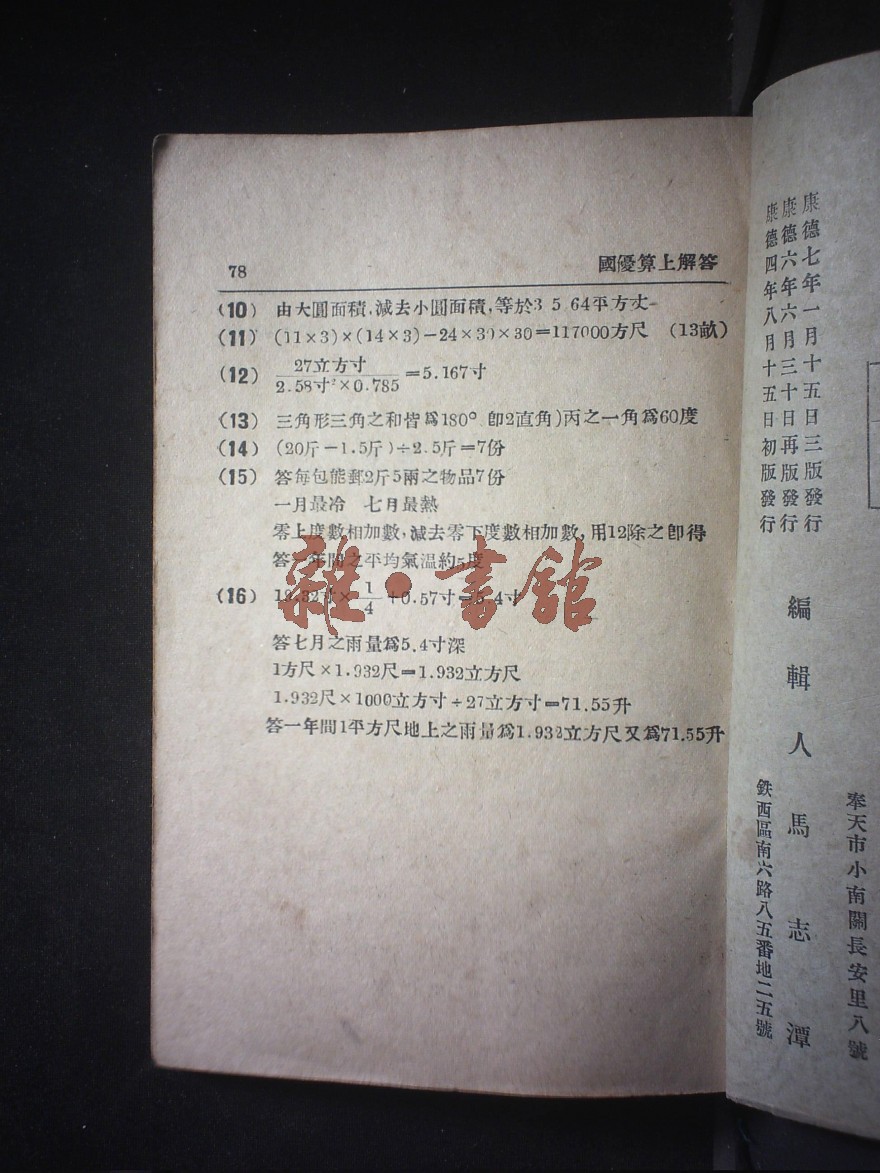 78
國優算上解答
(10) 由大圓面積,減去小圓面積,等於3 5.64平方丈
(11) (11×3)×(14×3)-24×30×30=117000方尺 (13畝)
(12) 27立方寸/2.58寸²×0.785=5.167寸
(13) 三角形三角之和皆爲180° 卽2直角)丙之一角爲60度
(14) (20斤-1.5斤)÷2.5斤=7份
(15) 答每包能郵2斤5兩之物品7份
一月最冷 七月最熱
零上度數相加數,減去零下度數相加數,用12除之卽得
答一年間之平均氣温約5度
(16) 1/4+0.57寸=5.4寸
答七月之雨量爲5.4寸深
1方尺×1.932尺=1.932立方尺
1.932尺×1000立方寸÷27立方寸=71.55升
答一年間1平方尺地上之雨量爲1.932立方尺又爲71.55升
雜·書館
康德七年一月十五日三版發行
康德六年六月三十日再版發行
康德四年八月十五日初版發行
編輯人 馬志潭
鉄西區南六路八五番地二五號
奉天市小南關長安里八號